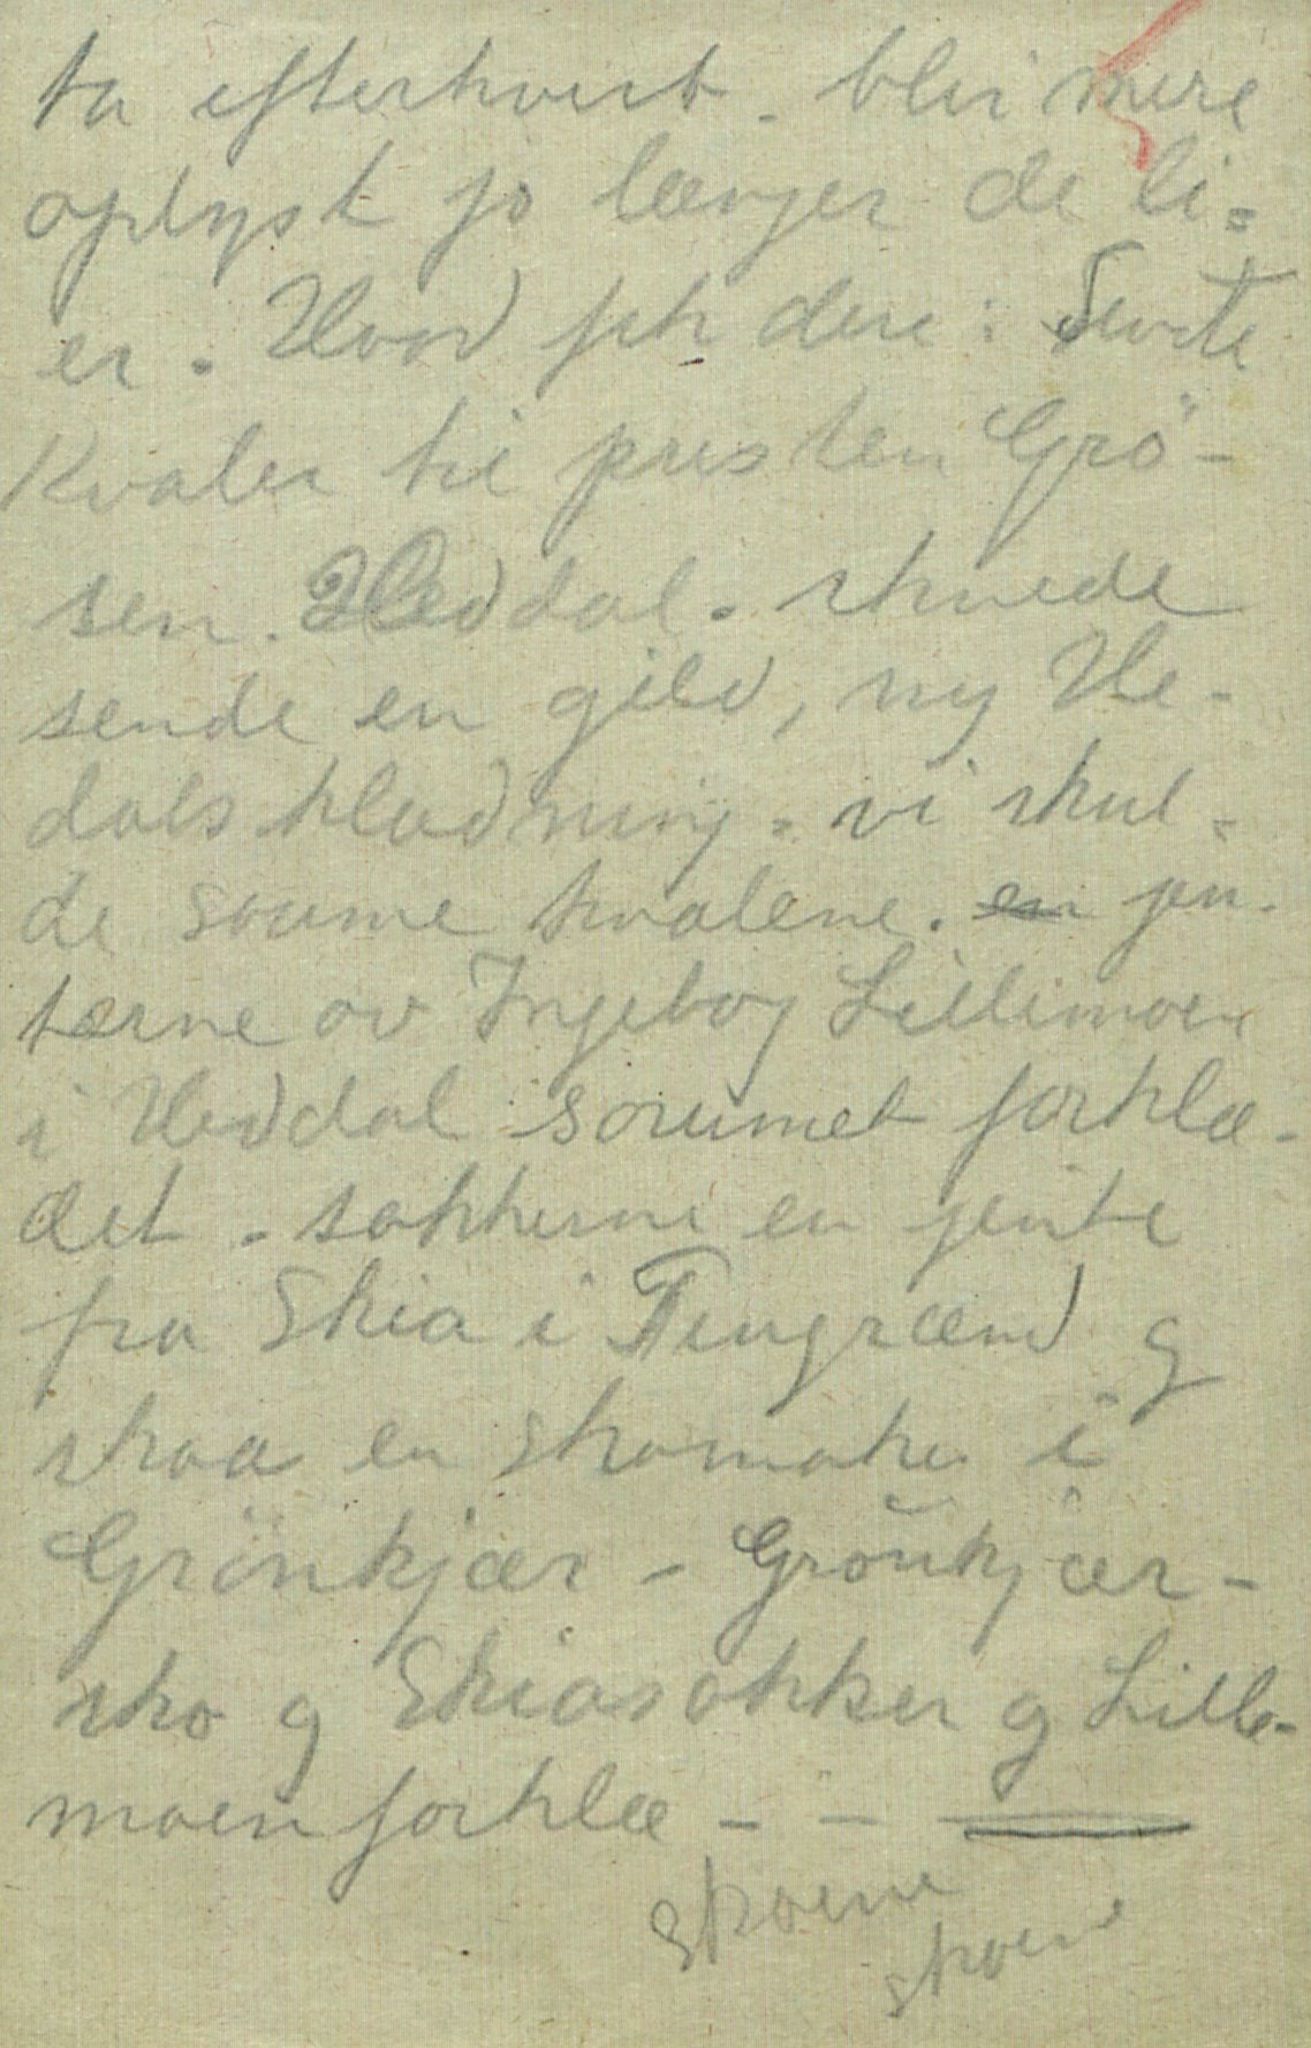 ta efterhvert. blir mere
oplyst jo længer de li-
er. Hvad fik dere:
Kvaler te presten Grö-
sen. Heddal. skuede
sende en gild, ny He-
dals kladning. vi skul-
de soume kvalene. en jen-
terne av Ingebog Lillemoen
i Heddal soumet forklæ-
det. sokkerne en jente
fra Skia i Tingrænd g
skoa en skomaker i
Grönkjær - Grönkjær-
sko g Skiasokker g Lille-
moen forklæ - - -
skoene
skoene